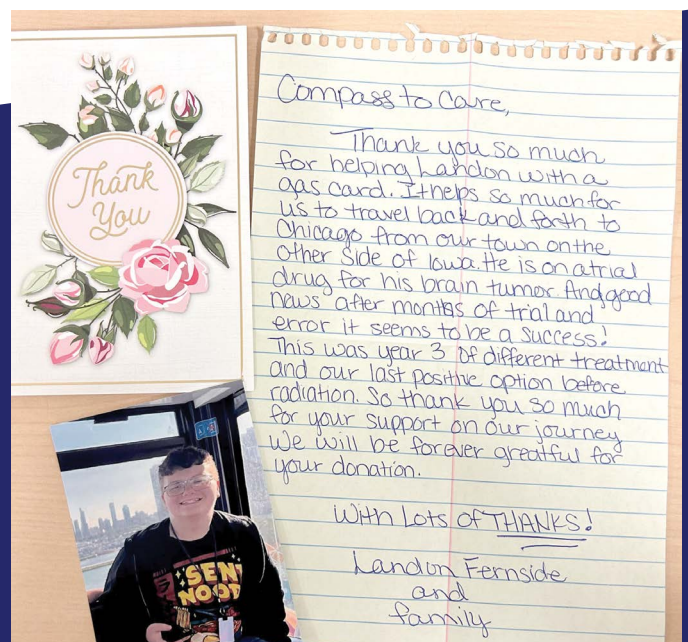 Thank
You
Compass to Care,
Thank you so much
for helping Landon with a
gas card. It helps so much for
us to travel back and forth to
Chicago from our town on the
other side of Iowa. He is on a trial
drug for his brain tumor. And good
news after months of trial and
error it seems to be a success!
This was year 3 of different treatment
and our last positive option before
radiation. So thank you so much
for your support on our journey
We will be forever greatful for
your donation.
With Lots of THANKS!
Landon Fernside
and
family
SEN
NOO